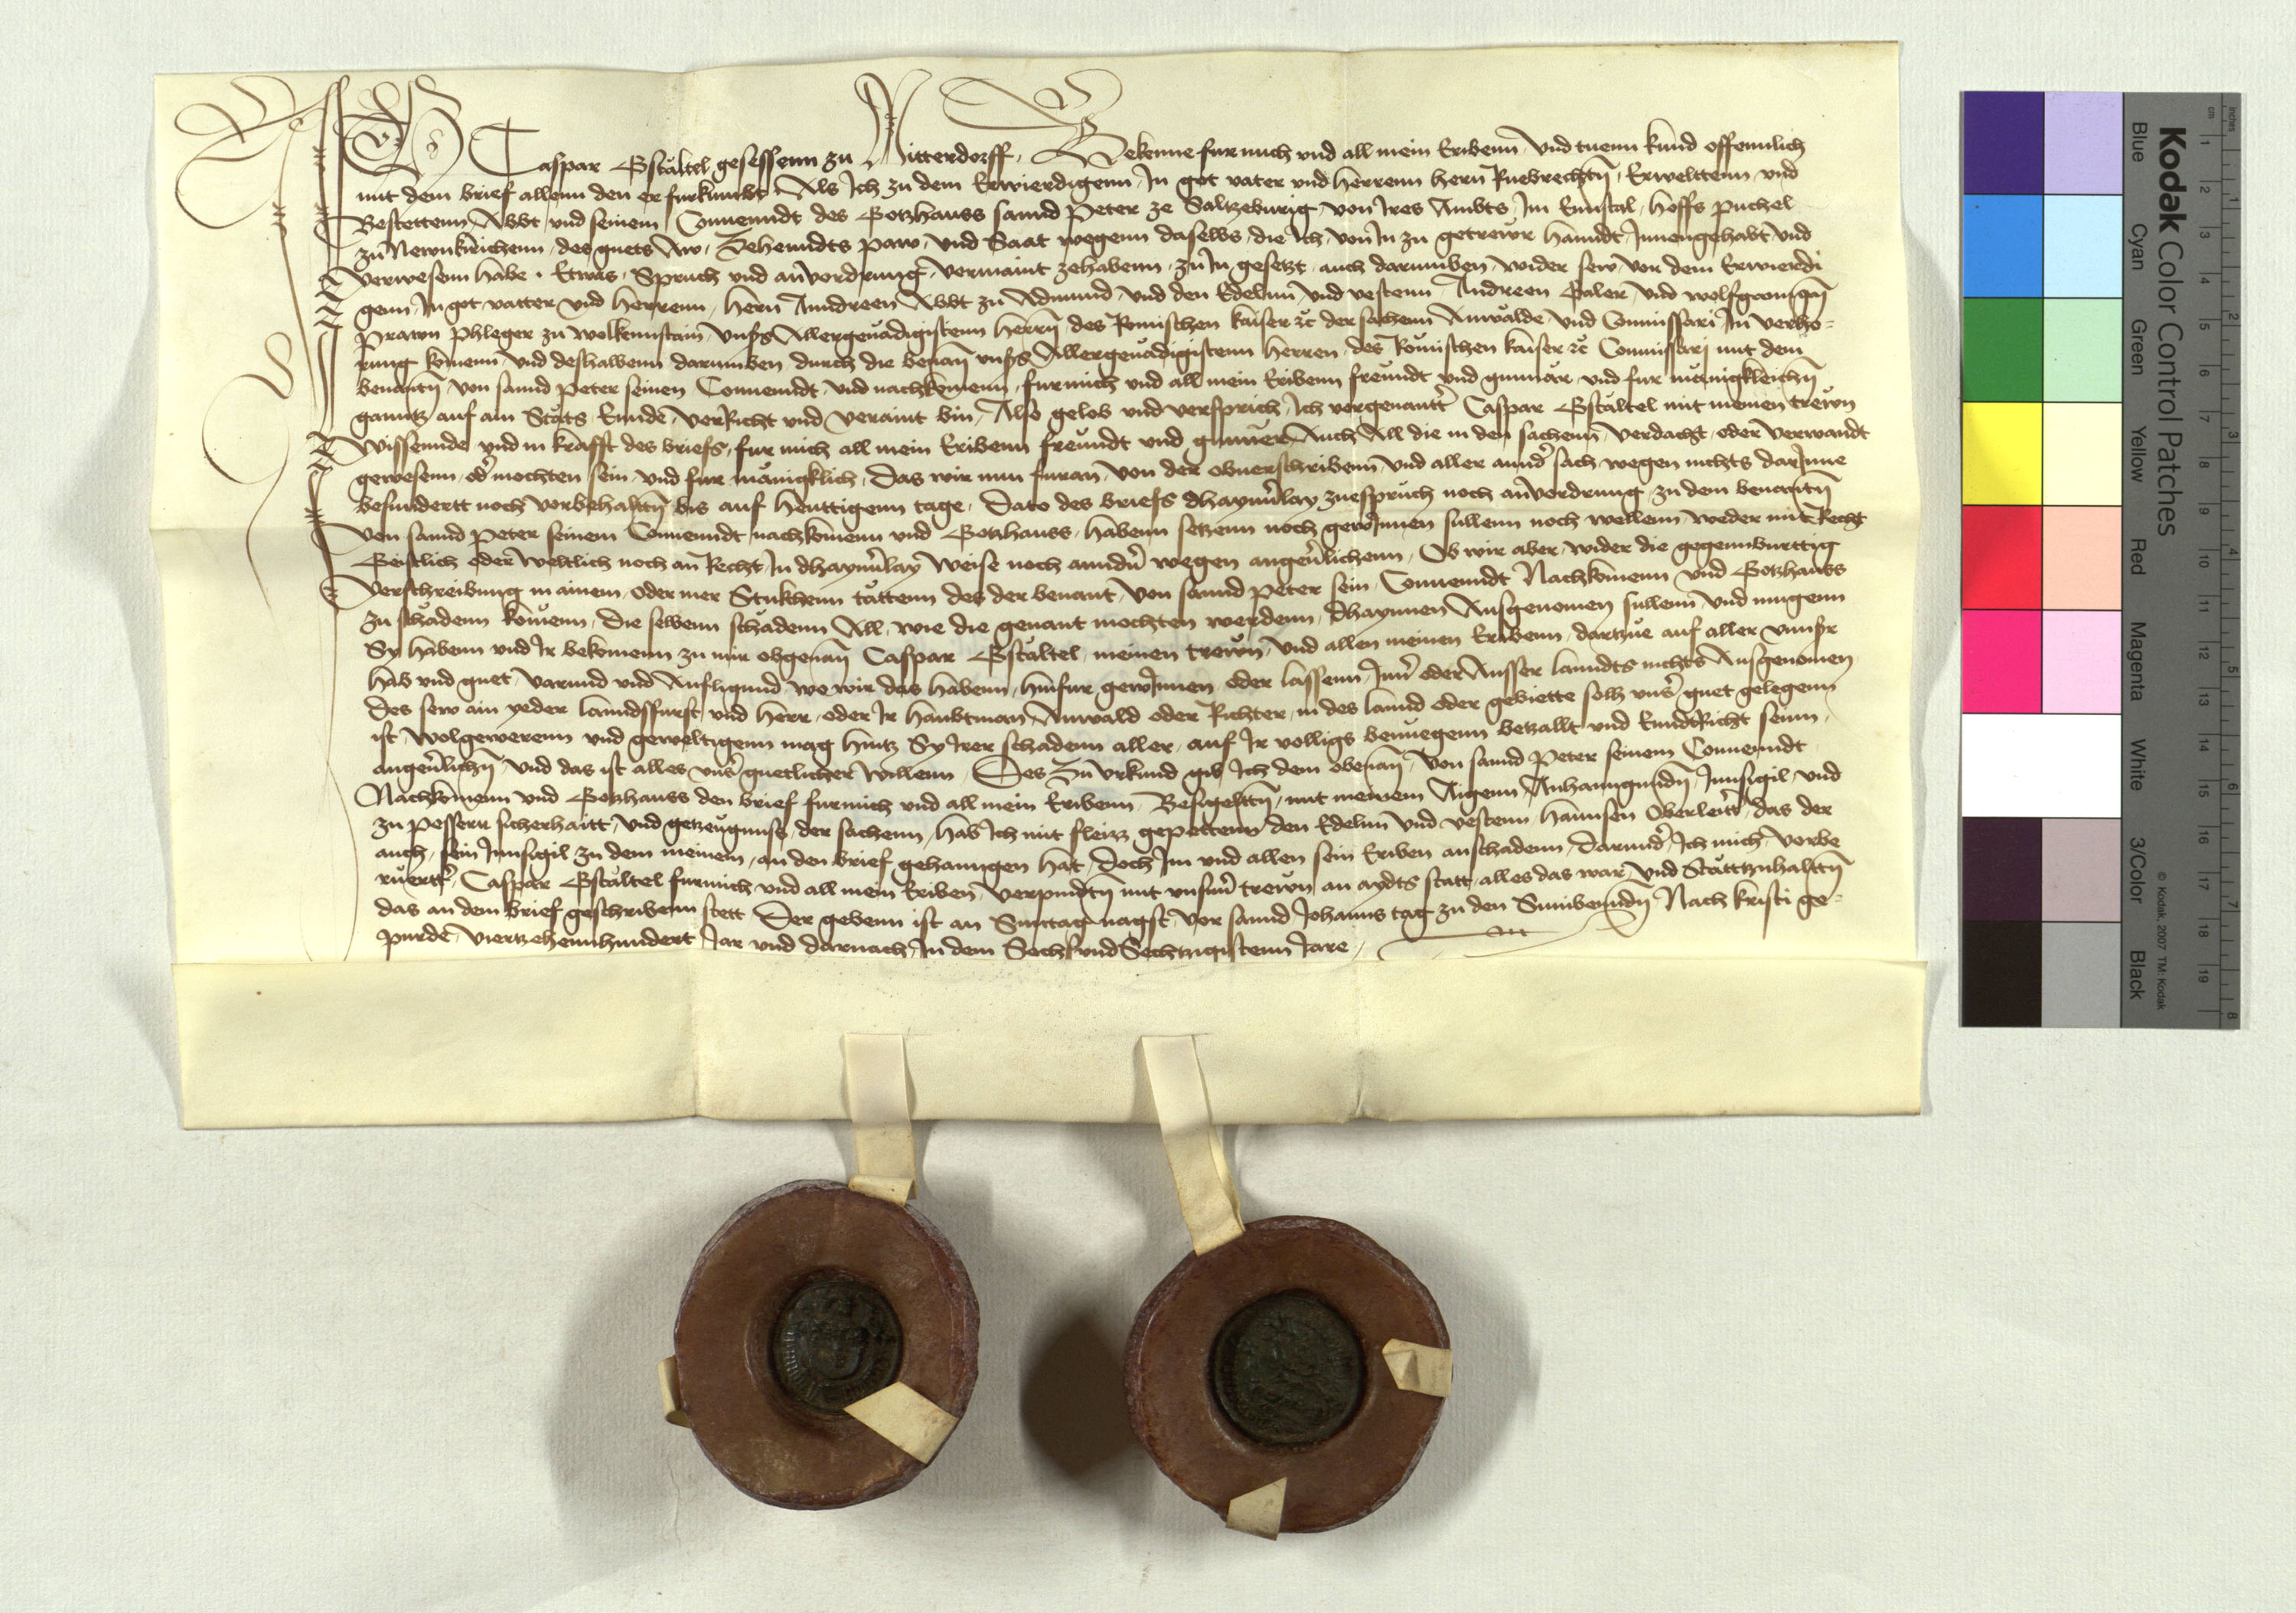 Ich Caspar Gstaltel gesessenn zu Mitterdorff, Bekenne fur mich vnd all mein Eribenn vnd tuenn kund offennlich
mit dem brief allenn den er furkumbt Als Ich zu dem Erwierdigenn In got vater vnd herrenn hern Ruebrechtn Erweltenn vnd
Bestettenn Abbt vnd seinem Conuenndt des Gotzhauss sannd Peter ze Saltzeburg von Ires Ambts Im Ennstal hoffs puchel
zu Newnkirichenn des guets Aw Zehenndts paw vnd Saat wegenn daselbs die Ich von In zu getrewr hanndt Innengehabt vnd
verwesenn habe Etwas Spruch vnd anvordrung vermaint zehabenn zu In gesetzt auch darumben wider sew vor dem Erwierdi
genn In got vatter vnd herrenn hern Anndreen Abbt zu Admund vnd den Edelnn vnd vestenn Andreen Galer vnd wolfgangn
Prawn Phleger zu wolkennstain vnsers Allergenadigistenn herrn des Romischen kaiser etc der sachenn Anwalde vnd Comissari In verho-
rung komenn vnd deshalbenn darumben durch die benan vnsers Allergenadigistenn herren des Romischen kaiser etc Comissari mit dem
benantn von sannd Peter seinen Conuenndt vnd nachkomenn fur mich vnd all mein Eribenn freundt vnd gunner vnd fur manigkleichn
ganntz auf ain Stats Ennde verRicht vnd veraint bin Also gelob vnd versprich Ich vorgenantr Caspar Gstaltel mit meinen trewn
wissennde vnd in krafft des briefs fur mich all mein Eribenn freundt vnd gunner Auch All die in den sachenn verdacht oder verwandt
gewesenn oder mochten sein vnd fur manigklich Das wir nun furan von der obuerschribenn vnd aller annder sach wegen nichts darInne
besundertt noch vorbehaltn bis auf heuttigenn tage Dato des briefs dhaynerlay zuespruch noch anvordrung zu dem benantn
von sannd Peter seinem Conuenndt nachkomenn vnd Gotzhauss habenn setzenn noch gewInnen sullenn noch wellenn weder mit Recht
Geistlich oder weltlich noch an Recht In dhaynerlay weise noch annder wegen angeuerlichenn Ob wir aber wider die gegennburttig
verschreibung in ainem oder mer Stukhenn tattenn des der benant von sannd Peter sein Conuenndt Nachkomenn vnd Gotzhauss
zu schadenn komenn die selbenn schadenn All wie die genant mochten werdenn dhaynnen Ausgenomen sullenn vnd mugenn
Sy habenn vnd Ir bekomenn zu mir obgenan Caspar Gstaltel meinen trewn vnd allen meinen Eribenn dartzue auf aller vnnser
hab vnd guet varund vnd Aufligund wo wir das habenn hinfur gewInnen oder lassenn Inner oder Ausser lanndts nichts Ausgenomen
Des sew ain yeder lanndsfurst vnd herr oder Ir haubtman Anwald oder Richter in des lannd oder gebiette solh vnser guet gelegenn
ist wolgewerenn vnd geweltigenn mag hintz Sy Irer schadenn aller auf Ir volligs benuegenn betzallt vnd EnndtRicht seinn
angeuerlichn vnd das ist alles vnser guetlicher willenn Des Zu vrkund gib Ich dem obenan von sannd Peter seinem Conuenndt
Nachkomenn vnd Gotzhauss den brief fur mich vnd all mein Eribenn Besigeltn mit meinem Aigenn Anhanngundn Innsigil vnd
zu pesserr sicherhaitt vnd getzeugnuss der sachenn hab Ich mit fleizz gepettenn den Edelnn vnd vestenn hannsen Oberleiter das der
auch sein Innsigil zu dem meinem an den brief gehanngen hat doch Im vnd allen sein Eriben anschadenn Darunder Ich mich vorbe
ruertter Caspar Gstaltel fur mich vnd all mein Eriben verpindtn mit vnsern trewn an aydts statt alles das war vnd Stattzuhaltn
das an dem brief geschribenn stett Der gebenn ist an Sunntag nagst vor sannd Johanns tag zu den Sunibenndn Nach kristi ge-
purde viertzehennhundert Iar vnd darnach In dem Sechsvnd Sechtzigistenn Iare
Kodak Color Control Patches
Blue Cyan Green Yellow Red Magenta White 3/Color Black
© Kodak, 2007 TM: Kodak
cm 1 2 3 4 5 6 7 8 9 10 11 12 13 14 15 16 17 18 19
inches 1 2 3 4 5 6 7 8